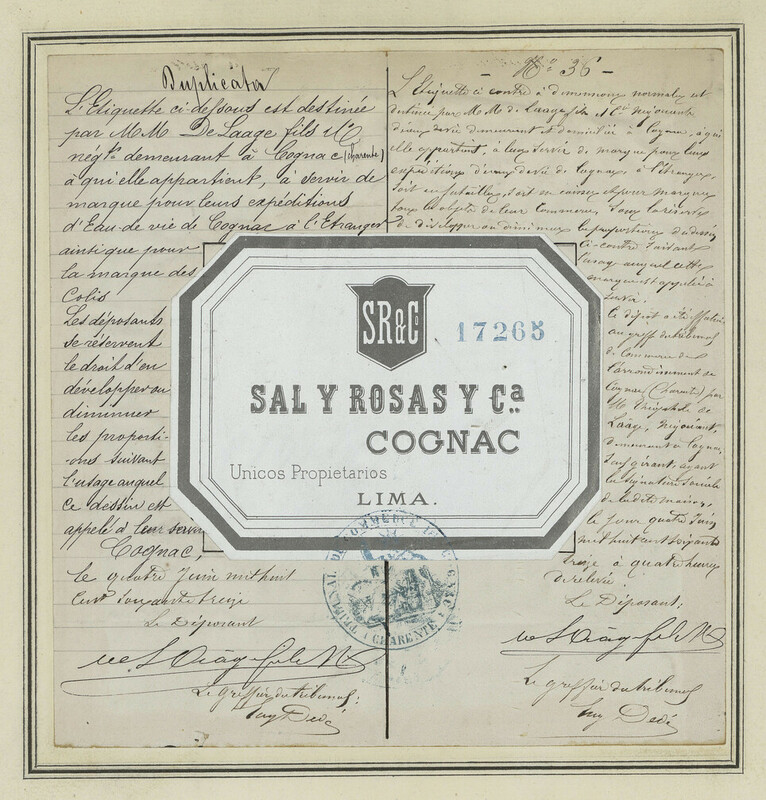 Duplicata
L'Etiquette ci-dessous est destinée
par M M De Laage fils & Cie
négts demeurant à Cognac (Charente)
à qui elle appartient, à servir de
marque pour leurs expéditions
d'Eau-de-vie de Cognac à l'Etranger
ainsi que pour
la marque des
Colis
Les déposants
se réservent
le droit d'en
développer ou
diminuer
les proporti-
ons suivant
l'usage auquel
ce dessin est
appelé à leur servir
Cognac,
le quatre Juin mil huit
cent soixante treize
Le Déposant
Le greffier du tribunal;
SR&Co
17265
SAL Y ROSAS Y Ca.
COGNAC
Unicos Propietarios
LIMA.
TRIBUNAL DE COMMERCE DE COGNAC
(CHARENTE)
- No 36 -
L'Etiquette ci contre à dimensions normales est
destinée par M M de Laage fils & Cie négociants
d'eaux de vie demeurant et domiciliés à Cognac, à qui
elle appartient, à leur servir de marque pour leurs
expéditions d'eaux de vie de Cognac à l'étranger,
soit en futailles, soit en caisses et pour marquer
tous les objets de leur commerce, sous la réserve
de développer ou diminuer les proportions du dessin
ci-contre suivant
l'usage auquel cette
marque est appelée à
servir.
Ce dépôt a été effectué
au greffe du tribunal
de Commerce de
l'arrondissement de
Cognac (Charente) par
M de
Laage, négociant,
demeurant à Cognac,
gérant, ayant
la signature sociale
de la dite maison,
le jour quatre Juin
mil huit cent soixante
treize à quatre heures
de relevée.
Le Déposant:
Le greffier du tribunal